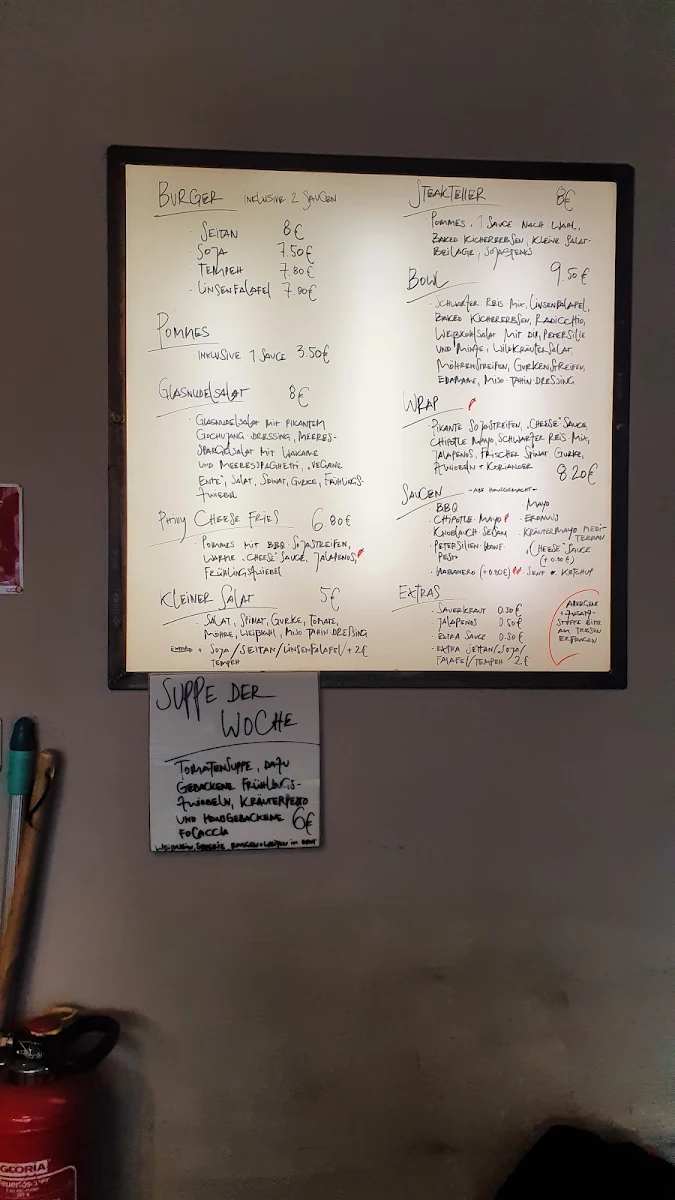 BURGER INKLUSIVE 2 SAUCEN
· SEITAN 8€
· SOJA 7.50€
· TEMPEH 7.80€
· LINSENFALAFEL 7.80€
POMMES
· INKLUSIVE 1 SAUCE 3.50€
GLASNUDELSALAT 8€
· GLASNUDELSALAT MIT PIKANTEM
GOCHUJANG-DRESSING, MEERES-
SPARGELSALAT MIT WAKAME
UND MEERESSPAGHETTI, „VEGANE
ENTE", SALAT, SPINAT, GURKE, FRÜHLINGS-
ZWIEBEL
PHILLY CHEESE FRIES 6.80€
· POMMES MIT BBQ SOJASTREIFEN,
WARME „CHEESE" SAUCE, JALAPENOS,
FRÜHLINGSZWIEBEL
KLEINER SALAT 5€
· SALAT, SPINAT, GURKE, TOMATE,
MÖHRE, WEIßKOHL, MISO TAHIN DRESSING
EXTRAS + SOJA/SEITAN/LINSENFALAFEL/+2€
TEMPEH
STEAKTELLER 8€
· POMMES, 1 SAUCE NACH WAHL,
BAKED KICHERERBSEN, KLEINE SALAT-
BEILAGE, SOJASTEAKS
BOWL 9.50€
· SCHWARZER REIS-MIX, LINSENFALAFEL,
BAKED KICHERERBSEN, RADICCHIO,
WEIßKOHLSALAT MIT DILL, PETERSILIE
UND MINZE, WILDKRÄUTERSALAT,
MÖHRENSTREIFEN, GURKENSTREIFEN,
EDAMAME, MISO-TAHIN-DRESSING
WRAP
· PIKANTE SOJASTREIFEN, „CHEESE" SAUCE,
CHIPOTLE MAYO, SCHWARZER REIS MIX,
JALAPENOS, FRISCHER SPINAT, GURKE,
ZWIEBELN + KORIANDER 8.20€
SAUCEN - ALLE HAUSGEMACHT -
BBQ · MAYO
· CHIPOTLE-MAYO · ERDNUSS
· KNOBLAUCH-SESAM · KRÄUTERMAYO MEDI-
TERRAN
· PETERSILIEN-HANF- · „CHEESE" SAUCE
PESTO (+0.80€)
· HABANERO (+0.80€) · SENF · KETCHUP
EXTRAS
· SAUERKRAUT 0.50€
· JALAPENOS 0.50€
· EXTRA SAUCE 0.50€
· EXTRA SEITAN/SOJA/
FALAFEL/TEMPEH 2€
ALLERGENE
+ ZUSATZ-
STOFFE BITTE
AM TRESEN
ERFRAGEN
SUPPE DER
WOCHE
TOMATENSUPPE, DAZU
GEBACKENE FRÜHLINGS-
ZWIEBELN, KRÄUTERPESTO
UND HAUSGEBACKENE 6€
FOCACCIA
GLORIA